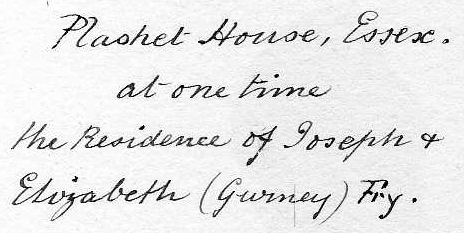 Plashet House, Essex.
at one time
the Residence of Joseph &
Elizabeth (Gurney) Fry.